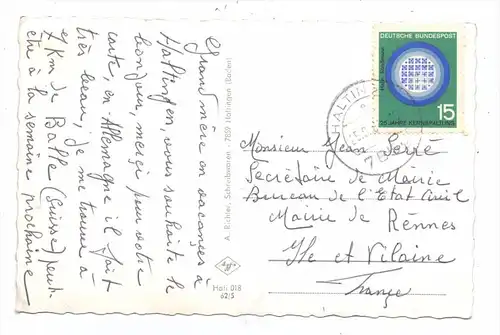 Grand'mère en vacances à
Haltingen, vous souhaite le
bonjour, merci pour votre
carte, en Allemagne il fait
très beau, je me trouve à
7 Km de Balle (Suisse)
être à la semaine prochaine
A. Richter, Schreibwaren, 7859 Haltingen (Baden)
Hali 018
62/5
DEUTSCHE BUNDESPOST
15
25 JAHRE KERNSPALTUNG
HALTIN
Monsieur Jean Serré
Secrétaire de Mairie
Bureau de l'Etat Civil
Mairie de Rennes
Ile et Vilaine
France